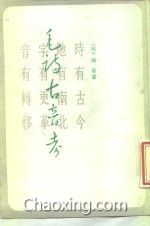 [明]陳第著
毛詩古音考
時有古今
地有南北
字有更革
音有轉移
Chaoxing.com